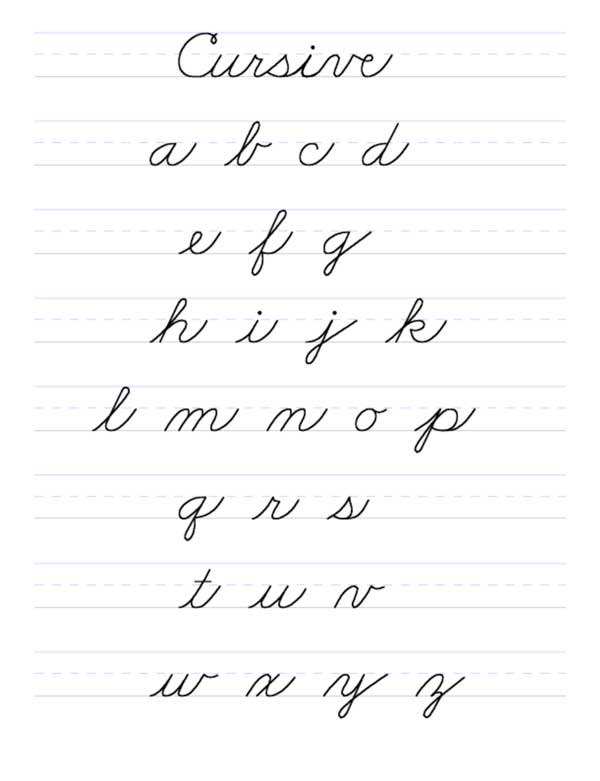 Cursive
a b c d
e f g
h i j k
l m n o p
q r s
t u v
w x y z